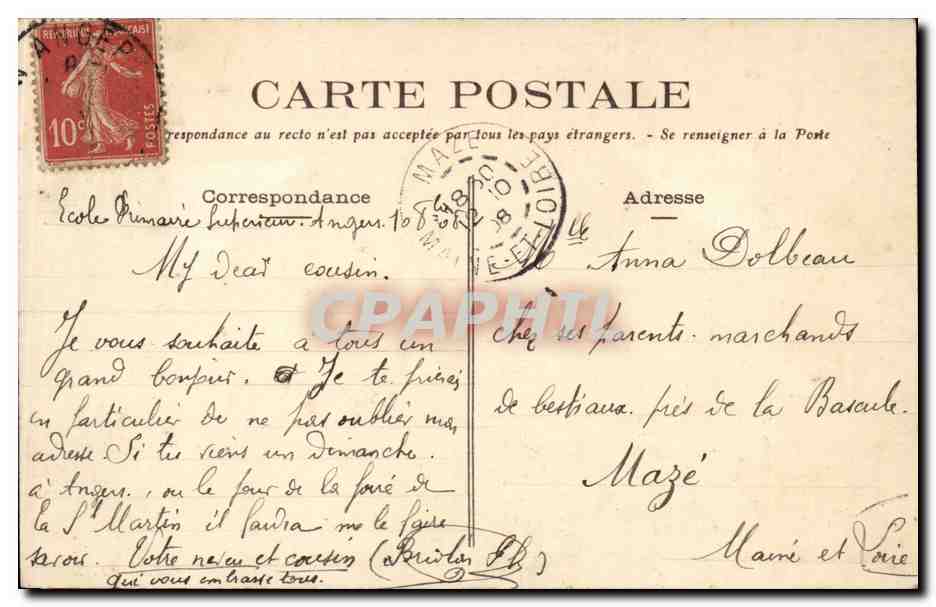 REPUBLIQUE FRANÇAISE
10c
POSTES
ANGERS
CARTE POSTALE
respondance au recto n'est pas acceptée par tous les pays étrangers. - Se renseigner à la Poste
MAZE
18 30
12 10
08
MAINE-ET-LOIRE
Correspondance
Adresse
Ecole Primaire Supérieure. Angers
My dear cousin.
Je vous souhaite à tous un
grand bonjour. Je te prierai
en particulier de ne pas oublier mon
adresse. Si tu viens un dimanche
à Angers, ou le jour de la foire de
la St Martin il faudra me le faire
savoir. Votre neveu et cousin
qui vous embrasse tous.
Mlle Anna Dolbeau
chez ses parents. marchands
de bestiaux. près de la Bascule.
Mazé
Maine et Loire
CPAPHIL